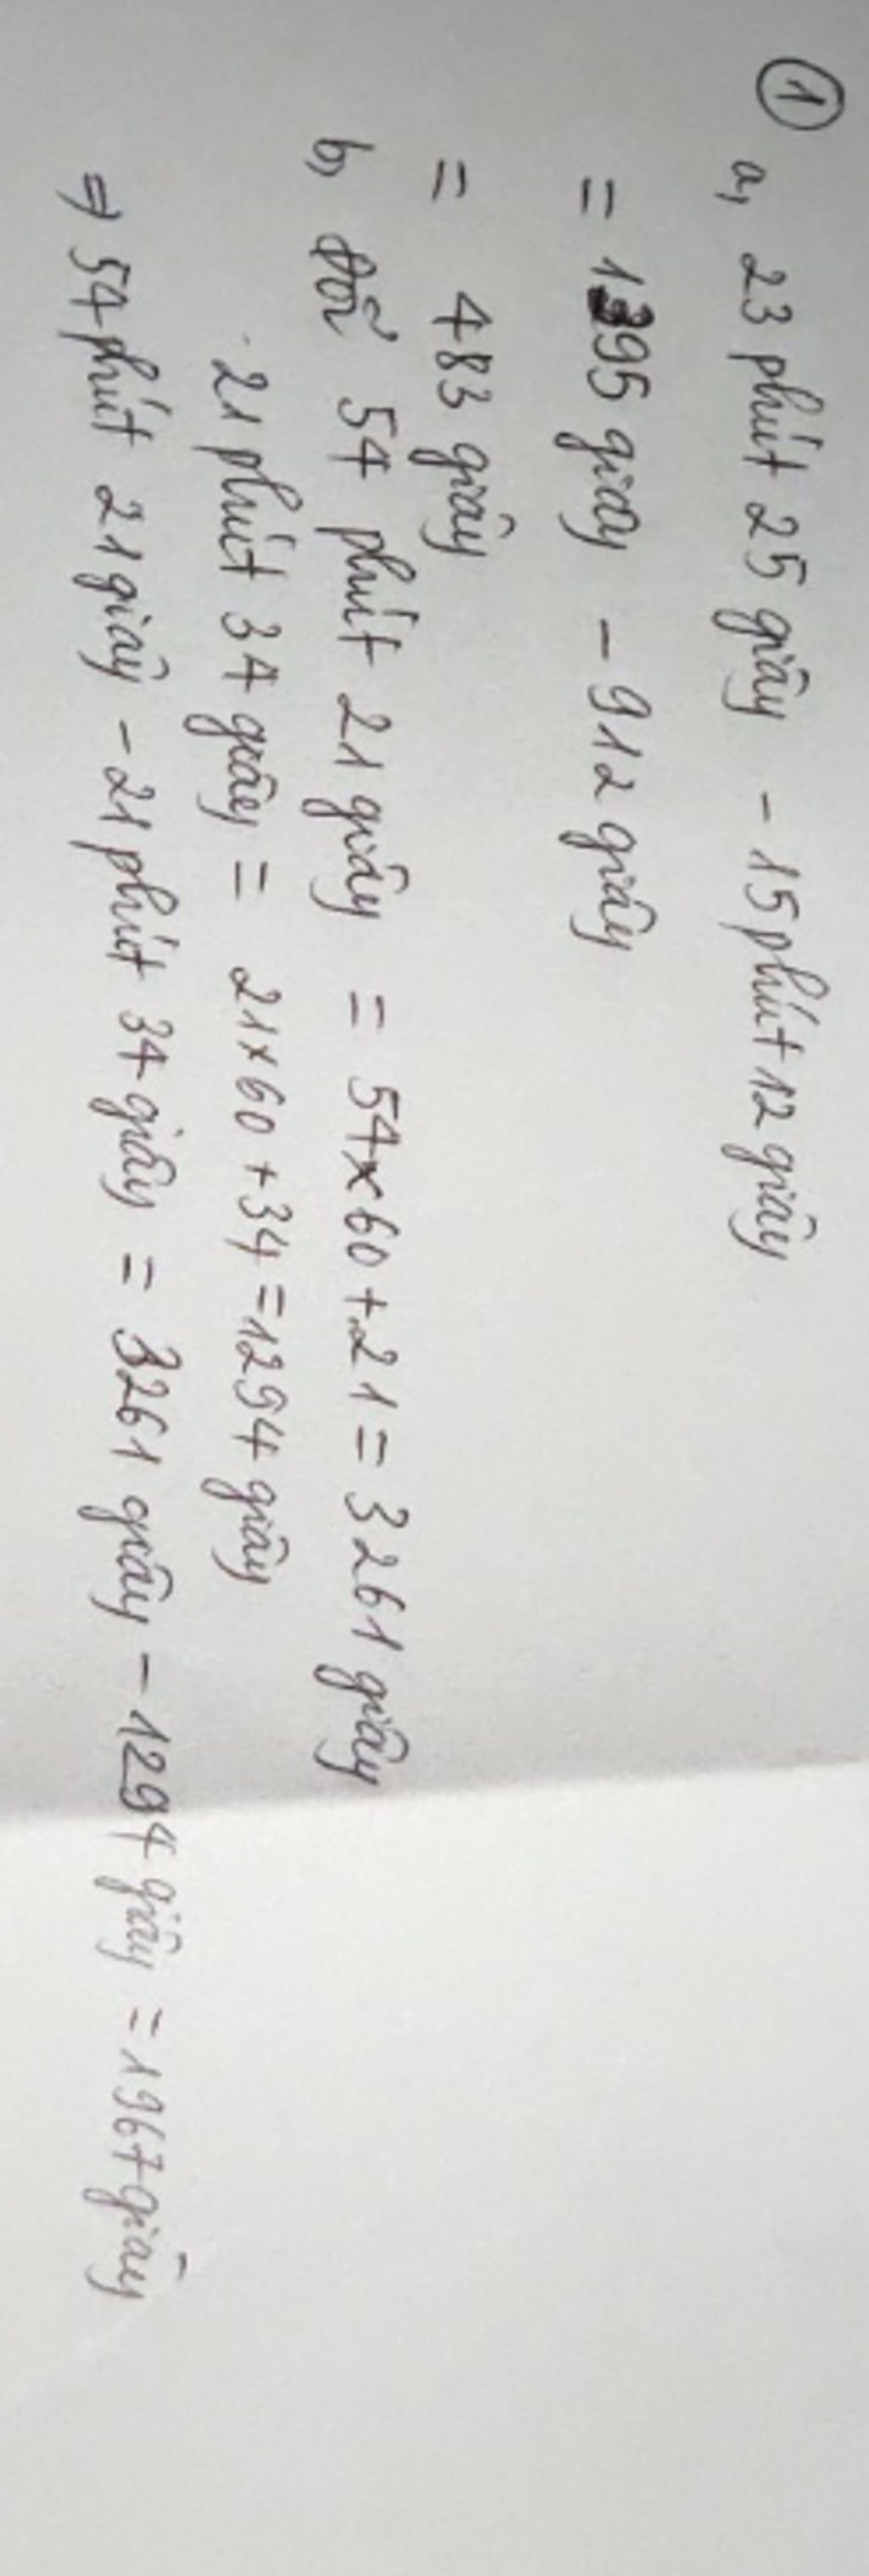 ① a, 23 phút 25 giây - 15 phút 12 giây
= 1395 giây - 912 giây
= 483 giây
b, Đổi 54 phút 21 giây = 54 x 60 + 21 = 3261 giây
21 phút 34 giây = 21 x 60 + 34 = 1294 giây
⇒ 54 phút 21 giây - 21 phút 34 giây = 3261 giây - 1294 giây = 1967 giây